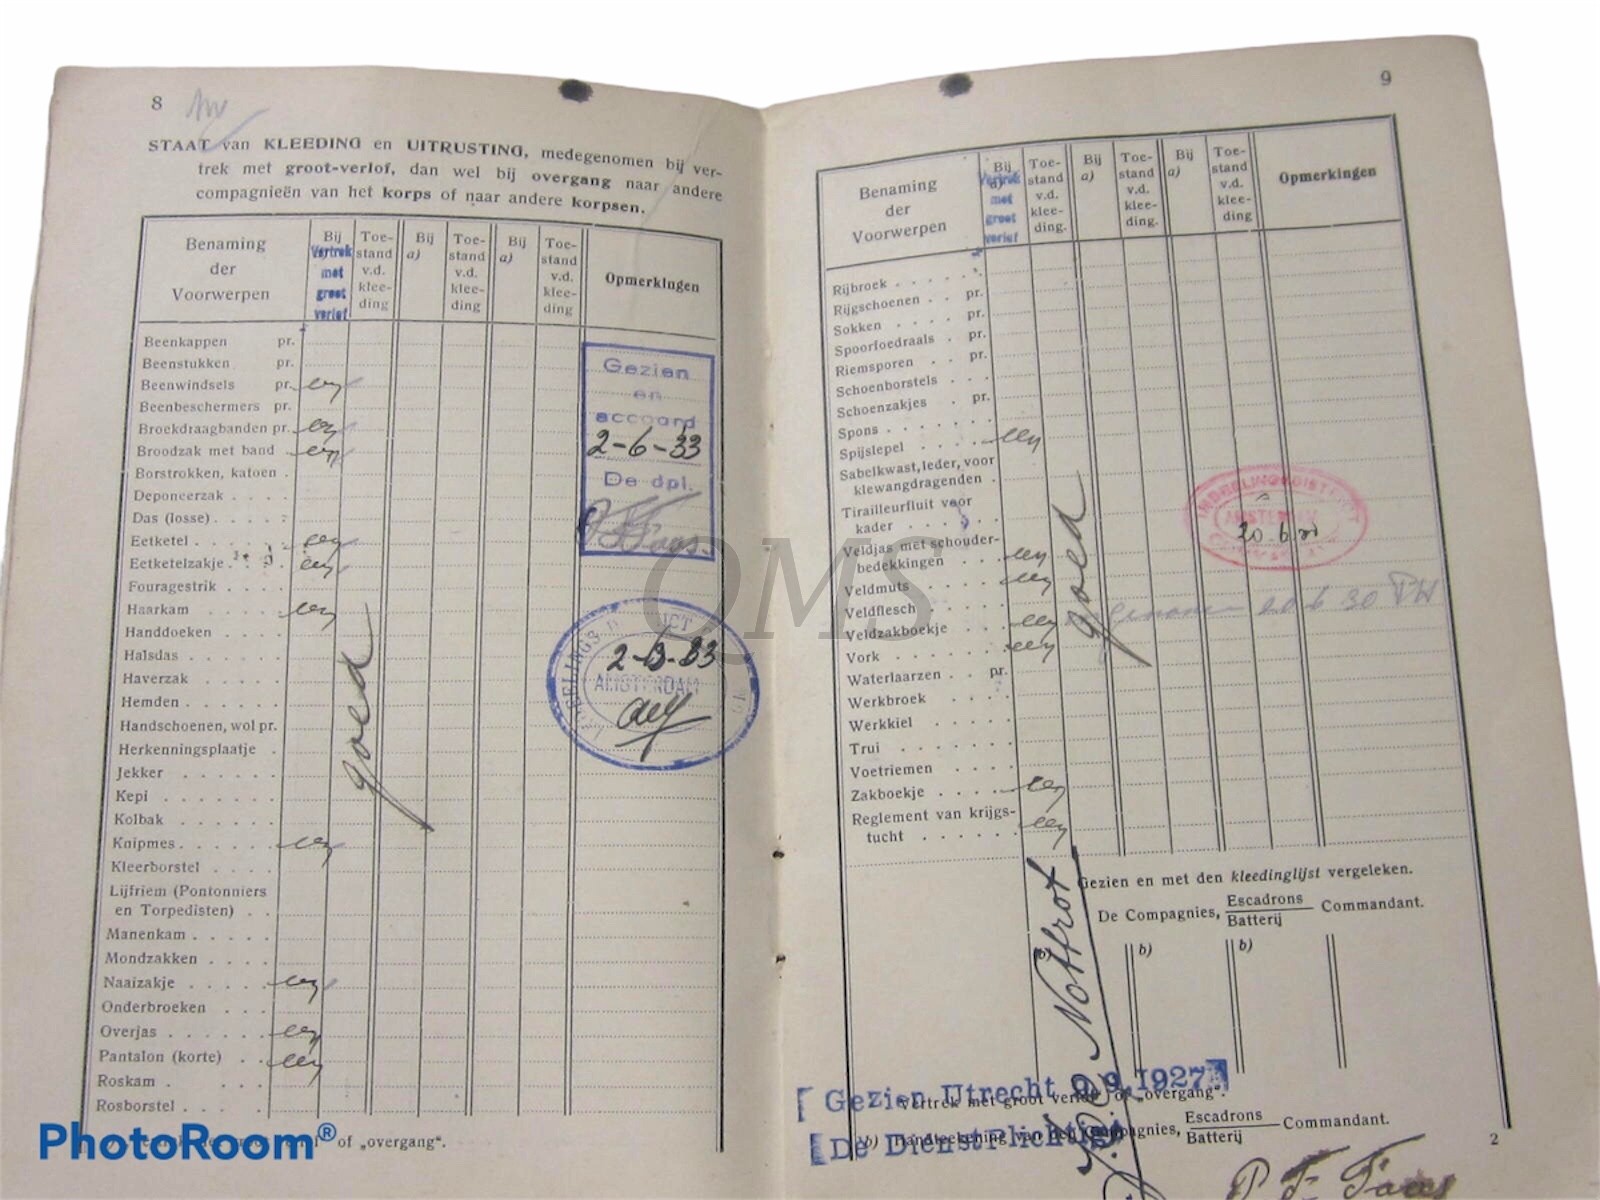 8
STAAT van KLEEDING en UITRUSTING, medegenomen bij ver-
trek met groot-verlof, dan wel bij overgang naar andere
compagnieën van het korps of naar andere korpsen.
Benaming
der
Voorwerpen
Bij
Vertrek
met
groot
verlof
Toe-
stand
v.d.
klee-
ding
Bij
a)
Toe-
stand
v.d.
klee-
ding
Bij
a)
Toe-
stand
v.d.
klee-
ding
Opmerkingen
Beenkappen pr.
Beenstukken pr.
Beenwindsels pr. een
Beenbeschermers pr.
Broekdraagbanden pr. een
Broodzak met band een
Borstrokken, katoen .
Deponeerzak . . . .
Das (losse) . . . . :
Eetketel . . . . . een
Eetketelzakje . . . een
Fouragestrik . . . .
Haarkam . . . . . een
Handdoeken . . . .
Halsdas . . . . . .
Haverzak . . . . .
Hemden . . . . . .
Handschoenen, wol pr.
Herkenningsplaatje .
Jekker . . . . . .
Kepi . . . . . . .
Kolbak . . . . . .
Knipmes . . . . . een
Kleerborstel . . . .
Lijfriem (Pontonniers
en Torpedisten) . .
Manenkam . . . . .
Mondzakken . . . .
Naaizakje . . . . . een
Onderbroeken . . .
Overjas . . . . . . een
Pantalon (korte) . . een
Roskam . . . . . .
Rosborstel . . . . .
goed
Gezien
en
accoord
2-6-33
De dpl.
Faas.
INDEELINGSDISTRICT
AMSTERDAM
of „overgang".
9
Benaming
der
Voorwerpen
Bij
a)
Vertrek
met
groot
verlof
Toe-
stand
v.d.
klee-
ding.
Bij
a)
Toe-
stand
v.d.
klee-
ding.
Bij
a)
Toe-
stand
v.d.
klee-
ding
Opmerkingen
Rijbroek . . . . .
Rijgschoenen . . pr.
Sokken . . . . pr.
Spoorfoedraals . pr.
Riemsporen . . pr.
Schoenborstels . . .
Schoenzakjes . pr.
Spons . . . . . .
Spijslepel . . . . een
Sabelkwast, leder, voor
klewangdragenden .
Tirailleurfluit voor
kader . . . . .
Veldjas met schouder-
bedekkingen . . . een
Veldmuts . . . . . een
Veldflesch . . . .
Veldzakboekje . . . een
Vork . . . . . . een
Waterlaarzen . . pr.
Werkbroek . . . .
Werkkiel . . . . .
Trui . . . . . . .
Voetriemen . . . .
Zakboekje . . . . een
Reglement van krijgs-
tucht . . . . . een
goed
INDEELINGSDISTRICT
AMSTERDAM
20.6
20 6 30
Gezien en met den kleedinglijst vergeleken.
De Compagnies, Escadrons Commandant.
Batterij
b)
b)
Nottrot
[ Gezien Utrecht 9.9.1927 ]
Vertrek met groot verlof of „overgang".
[ De DienstPlichtige
b) Handteekening van den Compagnies, Escadrons Commandant.
Batterij
P F Faas
2
QMS
PhotoRoom®